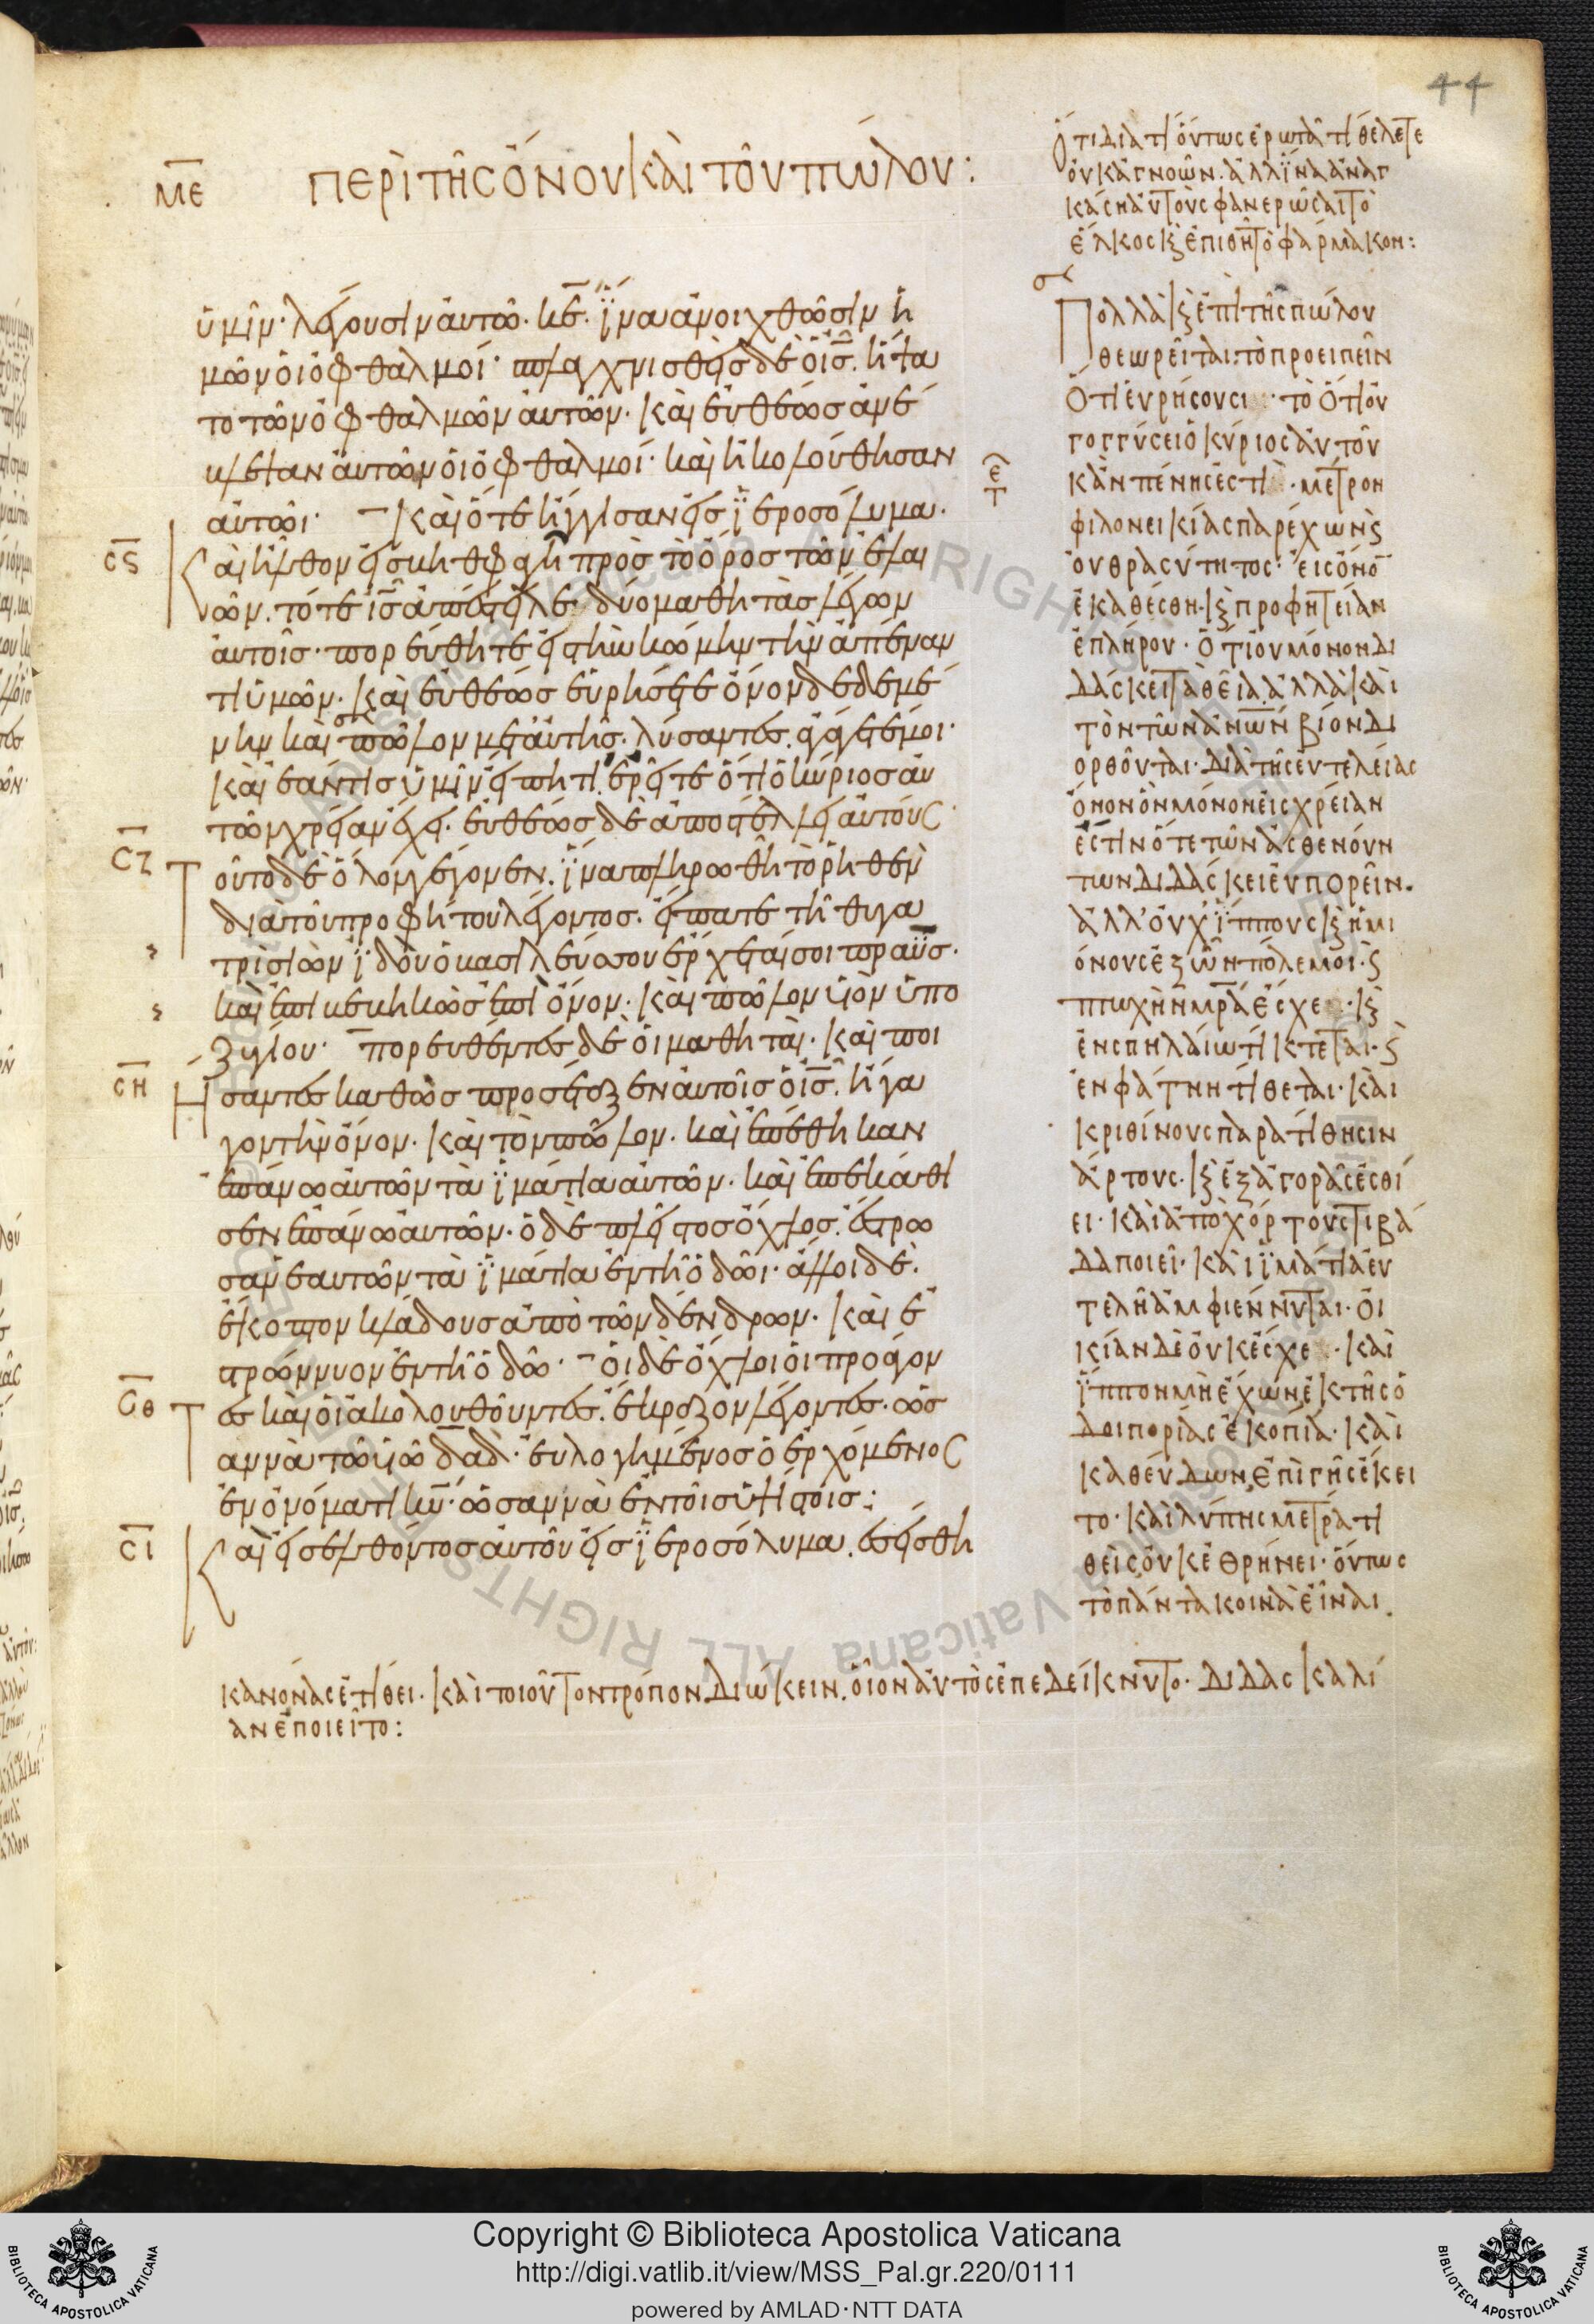 44
ΜΕ ΠΕΡῚ ΤΗ͂C ὌΝΟΥ ΚΑῚ ΤΟῦ ΠΏΛΟΥ:
ὑμῖν· λέγουσιν αὐτῶ· κε· ἵνα ἀνοιχθῶσιν ἡ
μῶν οἱ ὀφθαλμοί· σπλαγχνισθεὶς δὲ ὁ ις· ἥψα
το τῶν ὀφθαλμῶν αὐτῶν· καὶ εὐθέως ἀνέ
βλεψαν αὐτῶν οἱ ὀφθαλμοί· καὶ ἠκολούθησαν
αὐτῶι· Καὶ ὅτε ἤγγισαν εἰς ἱεροσόλυμα·
Cϛ
καὶ ἦλθον εἰς βηθφαγῆ πρὸς τὸ ὄρος τῶν ἐλαι
ῶν· τότε ις ἀπέστειλε δύο μαθητὰς λέγων
αὐτοῖς· πορεύθητε εἰς τὴν κώμην τὴν ἀπέναν
τι ὑμῶν· καὶ εὐθέως εὑρήσετε ὄνον δεδεμέ
νην καὶ πῶλον μετ' αὐτῆς· λύσαντες ἀγάγετέ μοι·
καὶ ἐάν τις ὑμῖν εἴπη τί ἐρεῖτε ὅτι ὁ κύριος αὐ
τῶν χρείαν ἔχει· εὐθέως δὲ ἀποστέλλει αὐτούς·
CΖ
τοῦτο δὲ ὅλον γέγονεν· ἵνα πληρωθῆ τὸ ῥηθὲν
διὰ τοῦ προφήτου λέγοντος· εἴπατε τῆ θυγα
τρὶ σιών ἰδοὺ ὁ βασιλεύς σου ἔρχεταί σοι πραΰς·
καὶ ἐπιβεβηκὼς ἐπὶ ὄνον· καὶ πῶλον υἱὸν ὑπο
ζυγίου· πορευθέντες δὲ οἱ μαθηταὶ· καὶ ποι
CΗ
ήσαντες καθὼς προσέταξεν αὐτοῖς ὁ ις· ἤγα
γον τὴν ὄνον· καὶ τὸν πῶλον· καὶ ἐπέθηκαν
ἐπάνω αὐτῶν τὰ ἱμάτια αὐτῶν· καὶ ἐπεκάθι
σεν ἐπάνω αὐτῶν· ὁ δὲ πλεῖστος ὄχλος· ἔστρω
σαν ἑαυτῶν τὰ ἱμάτια ἐν τῆ ὁδῶι· ἄλλοι δὲ·
ἔκοπτον κλάδους ἀπὸ τῶν δένδρων· καὶ ἐ
στρώννυον ἐν τῆ ὁδῶ· οἱ δὲ ὄχλοι οἱ προάγον
CΘ
τες καὶ οἱ ἀκολουθοῦντες· ἔκραζον λέγοντες· ὡσ
αννὰ τῶ υἱῶ δαδ· εὐλογημένος ὁ ἐρχόμενος
ἐν ὀνόματι κυ· ὡσαννὰ ἐν τοῖς ὑψίστοις:
CΙ
Καὶ εἰσελθόντος αὐτοῦ εἰς ἱεροσόλυμα· ἐσείσθη
ὅτι διατί οὕτως ἐρωτᾶ τί θέλετε
οὐκ ἀγνοῶν· ἀλλ ἵνα ἀναγ
κάση αὐτοὺς φανερῶσαι τὸ
ἕλκος κ ἐπιθῆ τὸ φάρμακον:
Πολλὰ κ ἐπὶ τῆς πώλου
θεωρεῖται· τὸ προειπεῖν
ὅτι εὑρήσουσι· τὸ ὅτι οὐ
γογγύσει ὁ κύριος αὐτοῦ
κἂν πένης ἐστὶ· μέτρον
φιλονεικίας παρέχων κ
οὐ θρασύτητος· εἰς ὄνον
ἐκαθέσθη· κ προφητείαν
ἐπλήρου· ὅτι οὐ μόνον δι
δάσκει τὰ θεῖα ἀλλὰ καὶ
τὸν τῶν ανων βίον δι
ορθοῦται· διὰ τῆς εὐτελείας
ὄνον ὃν μόνον εἰς χρείαν
ἐστὶν ὅτε τῶν ἀσθενούν
των διδάσκει εὐπορεῖν·
ἀλλ' οὐχ ἵππους κ ἡμι
όνους ἐζωνπόλεμοι· κ
πτωχὴ ημρα ἔσχε· κ
ἐν σπηλαίω τίκτεται· κ
ἐν φάτνη τίθεται· καὶ
κριθίνους παρατίθησιν
ἄρτους· κ ἐξ ἀγορᾶς ἐσθί
ει· καὶ ἀπὸ χόρτου στιβά
δα ποιεῖ· καὶ ἱμάτια εὐ
τελῆ ἀμφιέννυται· οἰ
κίαν δὲ οὐκ ἔσχε· καὶ
ἵππον μὴ ἔχων ἐκ τῆς ὁ
δοιπορίας ἐκοπία· καὶ
καθεύδων ἐπὶ γῆς ἔκει
το· καὶ λύπης μετρατι
θεὶς οὐκ ἐθρήνει· οὕτως
τὸ πάντα κοινὰ εἶναι
κανόνας ἐτίθει· καὶ τοιοῦτον τρόπον διώκειν· οἷον αὐτὸς ἐπεδείκνυτο· διδασκαλί
αν ἐποιεῖτο:
Copyright © Biblioteca Apostolica Vaticana
http://digi.vatlib.it/view/MSS_Pal.gr.220/0111
powered by AMLAD·NTT DATA
BIBLIOTECA APOSTOLICA VATICANA
BIBLIOTECA APOSTOLICA VATICANA